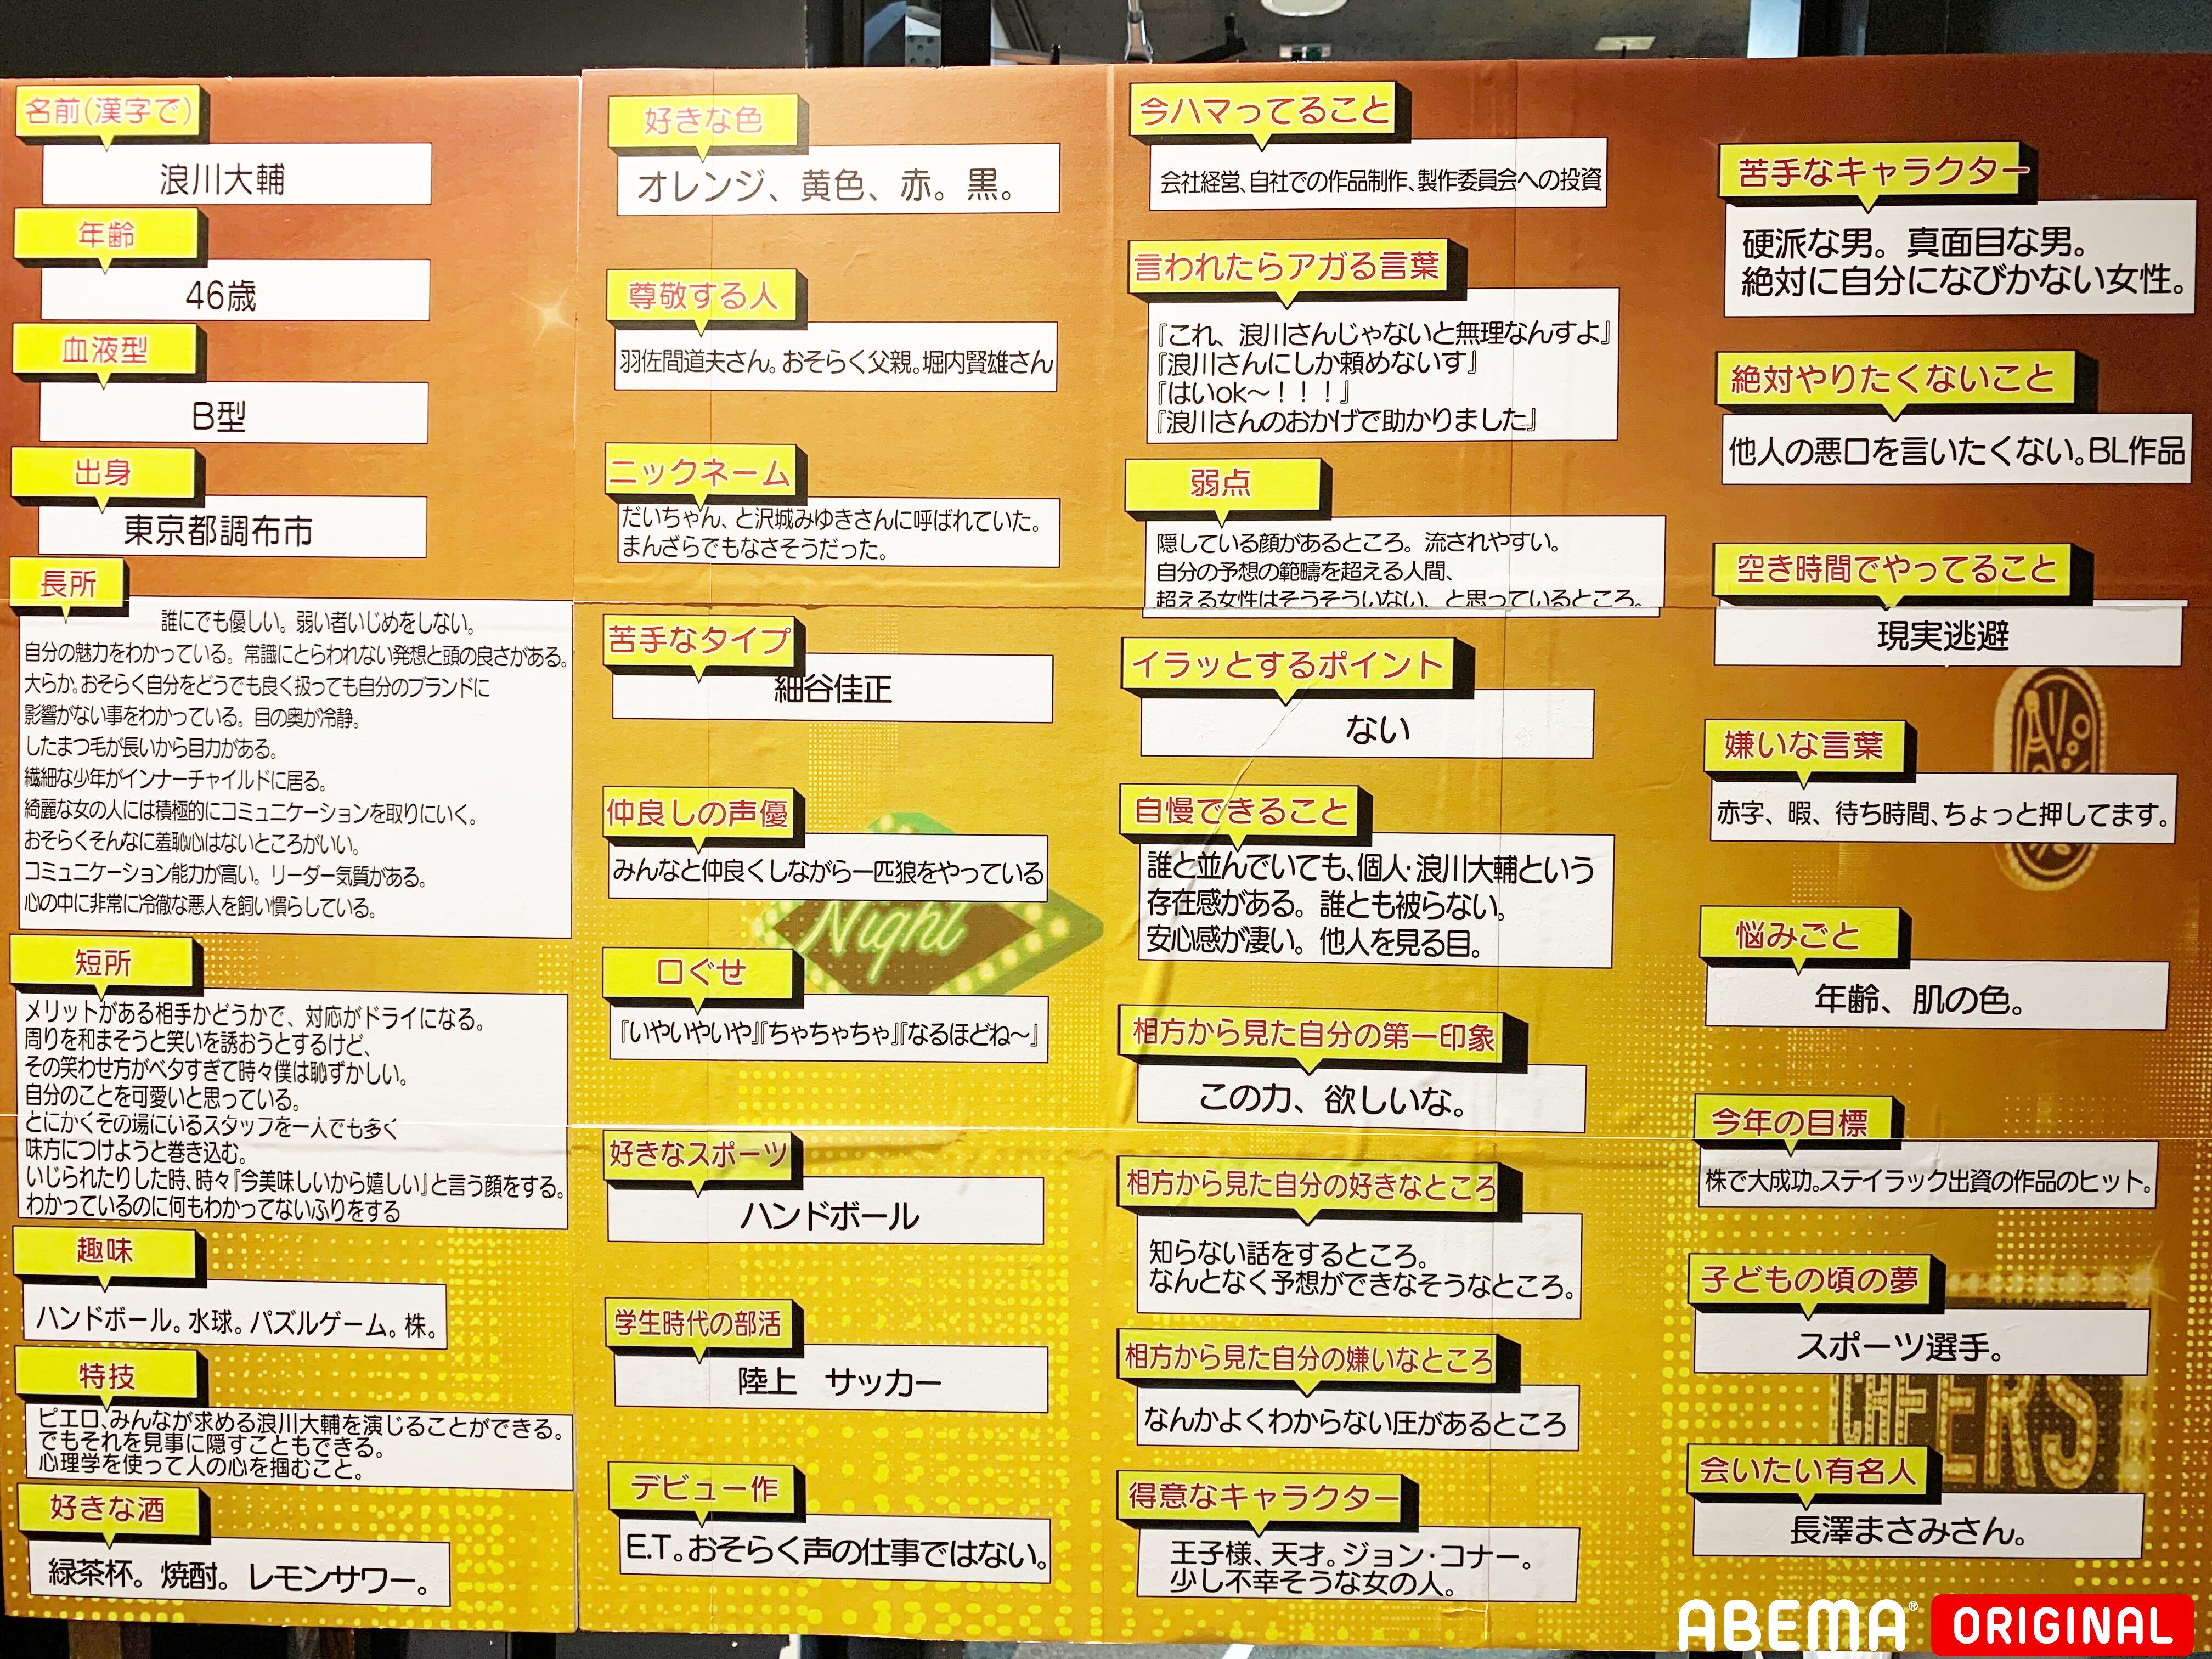 名前(漢字で)
浪川大輔
年齢
46歳
血液型
B型
出身
東京都調布市
長所
誰にでも優しい。弱い者いじめをしない。
自分の魅力をわかっている。常識にとらわれない発想と頭の良さがある。
大らか。おそらく自分をどうでも良く扱っても自分のブランドに
影響がない事をわかっている。目の奥が冷静。
したまつ毛が長いから目力がある。
繊細な少年がインナーチャイルドに居る。
綺麗な女の人には積極的にコミュニケーションを取りにいく。
おそらくそんなに羞恥心はないところがいい。
コミュニケーション能力が高い。リーダー気質がある。
心の中に非常に冷徹な悪人を飼い慣らしている。
短所
メリットがある相手かどうかで、対応がドライになる。
周りを和まそうと笑いを誘おうとするけど、
その笑わせ方がベタすぎて時々僕は恥ずかしい。
自分のことを可愛いと思っている。
とにかくその場にいるスタッフを一人でも多く
味方につけようと巻き込む。
いじられたりした時、時々『今美味しいから嬉しい』と言う顔をする。
わかっているのに何もわかってないふりをする
趣味
ハンドボール。水球。パズルゲーム。株。
特技
ピエロ、みんなが求める浪川大輔を演じることができる。
でもそれを見事に隠すこともできる。
心理学を使って人の心を掴むこと。
好きな酒
緑茶杯。焼酎。レモンサワー。
好きな色
オレンジ、黄色、赤。黒。
尊敬する人
羽佐間道夫さん。おそらく父親。堀内賢雄さん
ニックネーム
だいちゃん、と沢城みゆきさんに呼ばれていた。
まんざらでもなさそうだった。
苦手なタイプ
細谷佳正
仲良しの声優
みんなと仲良くしながら一匹狼をやっている
Night
口ぐせ
『いやいやいや』『ちゃちゃちゃ』『なるほどね〜』
好きなスポーツ
ハンドボール
学生時代の部活
陸上 サッカー
デビュー作
E.T。おそらく声の仕事ではない。
今ハマってること
会社経営、自社での作品制作、製作委員会への投資
言われたらアガる言葉
『これ、浪川さんじゃないと無理なんすよ』
『浪川さんにしか頼めないす』
『はいok〜！！！』
『浪川さんのおかげで助かりました』
弱点
隠している顔があるところ。流されやすい。
自分の予想の範疇を超える人間、
超える女性はそうそういない、と思っているところ。
イラッとするポイント
ない
自慢できること
誰と並んでいても、個人・浪川大輔という
存在感がある。誰とも被らない。
安心感が凄い。他人を見る目。
相方から見た自分の第一印象
この力、欲しいな。
相方から見た自分の好きなところ
知らない話をするところ。
なんとなく予想ができなそうなところ。
相方から見た自分の嫌いなところ
なんかよくわからない圧があるところ
得意なキャラクター
王子様、天才。ジョン・コナー。
少し不幸そうな女の人。
苦手なキャラクター
硬派な男。真面目な男。
絶対に自分になびかない女性。
絶対やりたくないこと
他人の悪口を言いたくない。BL作品
空き時間でやってること
現実逃避
嫌いな言葉
赤字、暇、待ち時間、ちょっと押してます。
悩みごと
年齢、肌の色。
今年の目標
株で大成功。ステイラック出資の作品のヒット。
子どもの頃の夢
スポーツ選手。
CHEERS
会いたい有名人
長澤まさみさん。
ABEMA® ORIGINAL